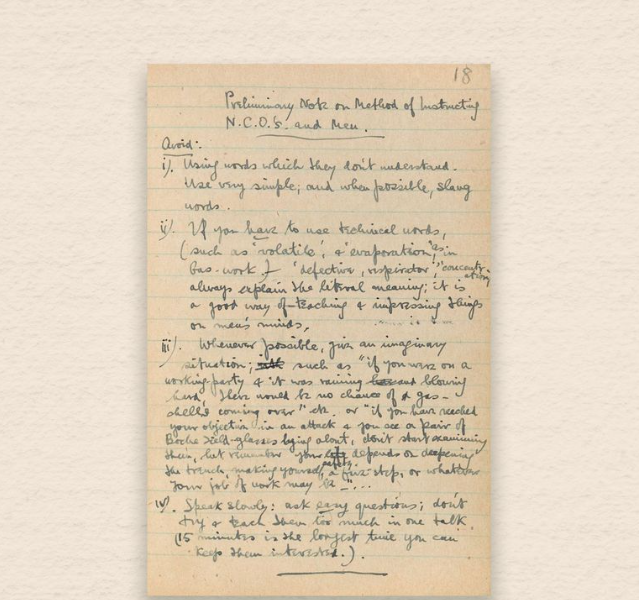 18
Preliminary Note on Method of Instructing
N.C.O.'s. and Men.
Avoid:-
i). Using words which they don't understand.
Use very simple; and when possible, slang
words.
ii). If you have to use technical words,
(such as 'volatile', & 'evaporation', as in
Gas-work.) 'defective respirator', 'concentration'
always explain the literal meaning; it is
a good way of teaching & impressing things
on men's minds,
iii). Whenever possible, give an imaginary
situation; such as "if you were on a
working-party & it was raining blowing
hard, there would be no chance of a gas-
shell coming over" etc. or "if you have reached
your objective in an attack & you see a pair of
Boche field-glasses lying about, don't start examining
them, but remember your safety depends on deepening
the trench, making yourself a fire-step, or whatever
your job of work may be"...
iv). Speak slowly: ask easy questions; don't
try & teach them too much in one talk.
(15 minutes is the longest time you can
keep them interested.).